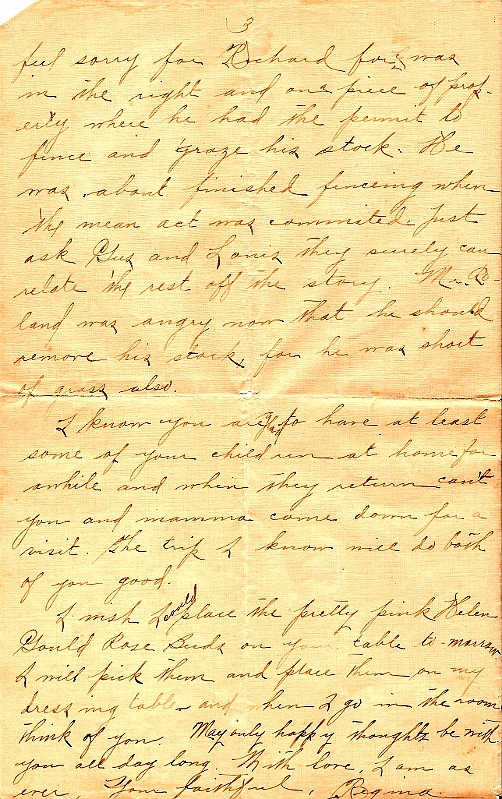 3
feel sorry for Richard for, was
in the right and one piece of prop-
erty where he had the permit to
fence and graze his stock. He
was about finished fenceing when
the mean act was commited. Just
ask Gus and Louis they surely can
relate the rest off the story. Mr. Ro-
land was angry now that he should
remove his stock, for he was short
of grass also.
I know you are glad to have at least
some of your children at home for
awhile and when they return can't
you and mamma come down for a
visit. The trip I know will do both
of you good.
I wish I could place the pretty pink Helen
Gould Rose Buds on your table to-morrow
I will pick them and place them on my
dressing table and when I go in the room
think of you. May only happy thoughts be with
you all day long. With love, I am as
ever, Your faithful, Regina.